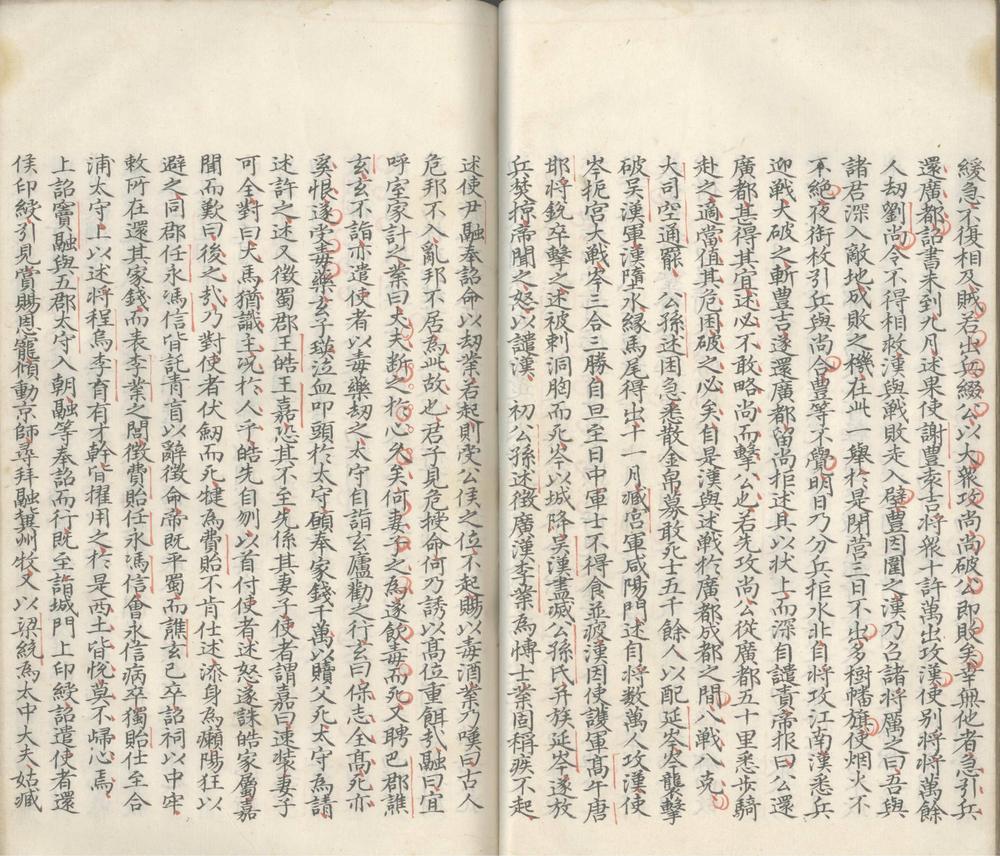 緩急不復相及賊若出兵綴公以大衆攻尚尚破公即敗矣幸無他者急引兵
還廣都詔書未到九月述果使謝豊袁吉將衆十許萬出攻漢使別將將萬餘
人劫劉尚令不得相救漢與戰敗走入壁豊因圍之漢乃召諸將厲之曰吾與
諸君深入敵地成敗之機在此一擧於是閉營三日不出多樹幡旗使烟火不
絶夜銜枚引兵與尚合豊等不覺明日乃分兵拒水北自將攻江南漢悉兵
迎戰大破之斬豊吉遂還廣都留尚拒述具以状上而深自譴責帝报曰公還
廣都甚得其宜述必不敢略尚而擊公也若先攻尚公從廣都五十里悉步騎
赴之適當值其危困破之必矣自是漢與述戰於廣都成都之間八戰八克
大司空通罷　公孫述困急悉散金帛募敢死士五千餘人以配延岑岑襲擊
破吴漢軍漢墮水緣馬尾得出十一月臧宮軍咸陽門述自將数萬人攻漢使
岑扼宮大戰岑三合三勝自旦至日中軍士不得食並疲漢因使護軍髙午唐
邯將銳卒擊之述被刺洞胸而死岑以城降吴漢盡滅公孫氏并族延岑遂放
兵焚掠帝聞之怒以譴漢　初公孫述徴廣漢李業為愽士業固稱疾不起
述使尹融奉詔命以劫業若起則受公侯之位不起賜以毒酒業乃嘆曰古人
危邦不入亂邦不居為此故也君子見危授命何乃誘以髙位重餌哉融曰宜
呼室家計之業曰丈夫断之於心久矣何妻子之為遂飲毒而死又聘巴郡譙
玄玄不詣亦遣使者以毒藥劫之太守自詣玄廬勸之行玄曰保志全髙死亦
奚恨遂受毒藥玄子瑛泣血叩頭於太守願奉家錢千萬以贖父死太守為請
述許之述又徴蜀郡王皓王嘉恐其不至先係其妻子使者謂嘉曰速裝妻子
可全對曰犬馬猶識主况於人乎皓先自刎以首付使者述怒遂誅皓家屬嘉
聞而歎曰後之哉乃對使者伏劒而死犍為費貽不肯仕述漆身為癩陽狂以
避之同郡任永馮信皆託青盲以辭徴命帝既平蜀而譙玄已卒詔祠以中牢
敕所在還其家錢而表李業之閭徴費貽任永馮信會永信病卒獨貽仕至合
浦太守上以述將程烏李育有才幹皆擢用之於是西土皆悅莫不歸心焉
上詔竇融與五郡太守入朝融等奉詔而行既至詣城門上印綬詔遣使者還
侯印綬引見賞賜恩寵傾動京師尋拜融冀州牧又以梁統為太中大夫姑臧